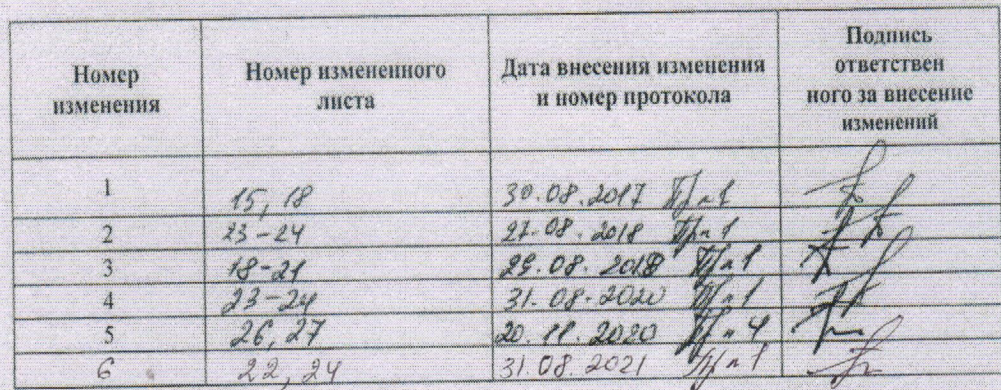 Номер изменения | Номер измененного листа | Дата внесения изменения и номер протокола | Подпись ответствен ного за внесение изменений
1 | 15, 18 | 30.08.2017 Пр.№1
2 | 23-24 | 27.08.2018 Пр.№1
3 | 18-21 | 29.08.2018 Пр.№1
4 | 23-24 | 31.08.2020 Пр.№1
5 | 26, 27 | 20.11.2020 Пр.№4
6 | 22, 24 | 31.08.2021 Пр.№1